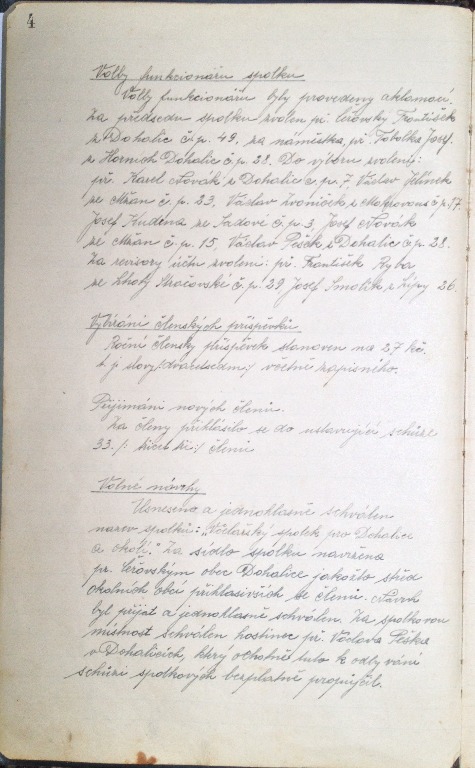 4
Volby funkcionářů spolku
Volby funkcionářů byly provedeny aklamací.
Za předsedu spolku zvolen př. Čeřovský František
z Dohalic č.p. 49, za náměstka, př. Fabolka Josef.
z Horních Dohalic č.p. 28. Do výboru zvoleni:
př. Karel Novák z Dohalic č.p. 7, Václav Jelínek
ze Mžan č.p. 23, Václav Zvoníček z Mokrovous č.p. 17.
Josef Kudrna ze Sadové č.p. 3, Josef Novák
ze Mžan č.p. 15, Václav Pešek z Dohalic č.p. 28.
Za revisory účtů zvoleni: př. František Ryba
ze Lhoty Stračovské č.p. 29 Josef Smolík z Lípy 26.
Vybírání členských příspěvků
Roční členský příspěvek stanoven na 27 kč.
t.j. slovy /dvacetsedm/ včetně zápisného.
Přijímání nových členů.
Za členy přihlásilo se do ustavující schůze
33. /: třicet tři :/ členů
Volné návrhy
Usneseno a jednohlasně schválen
název spolku: "Včelařský spolek pro Dohalice
a okolí." Za sídlo spolku navržena
př. Čeřovským obec Dohalice jakožto střed
okolních obcí přihlásivších se členů. Návrh
byl přijat a jednohlasně schválen. Za spolkovou
místnost schválen hostinec př. Václava Peška
v Dohalicích, který ochotně tuto k odbývání
schůzí spolkových bezplatně propůjčil.